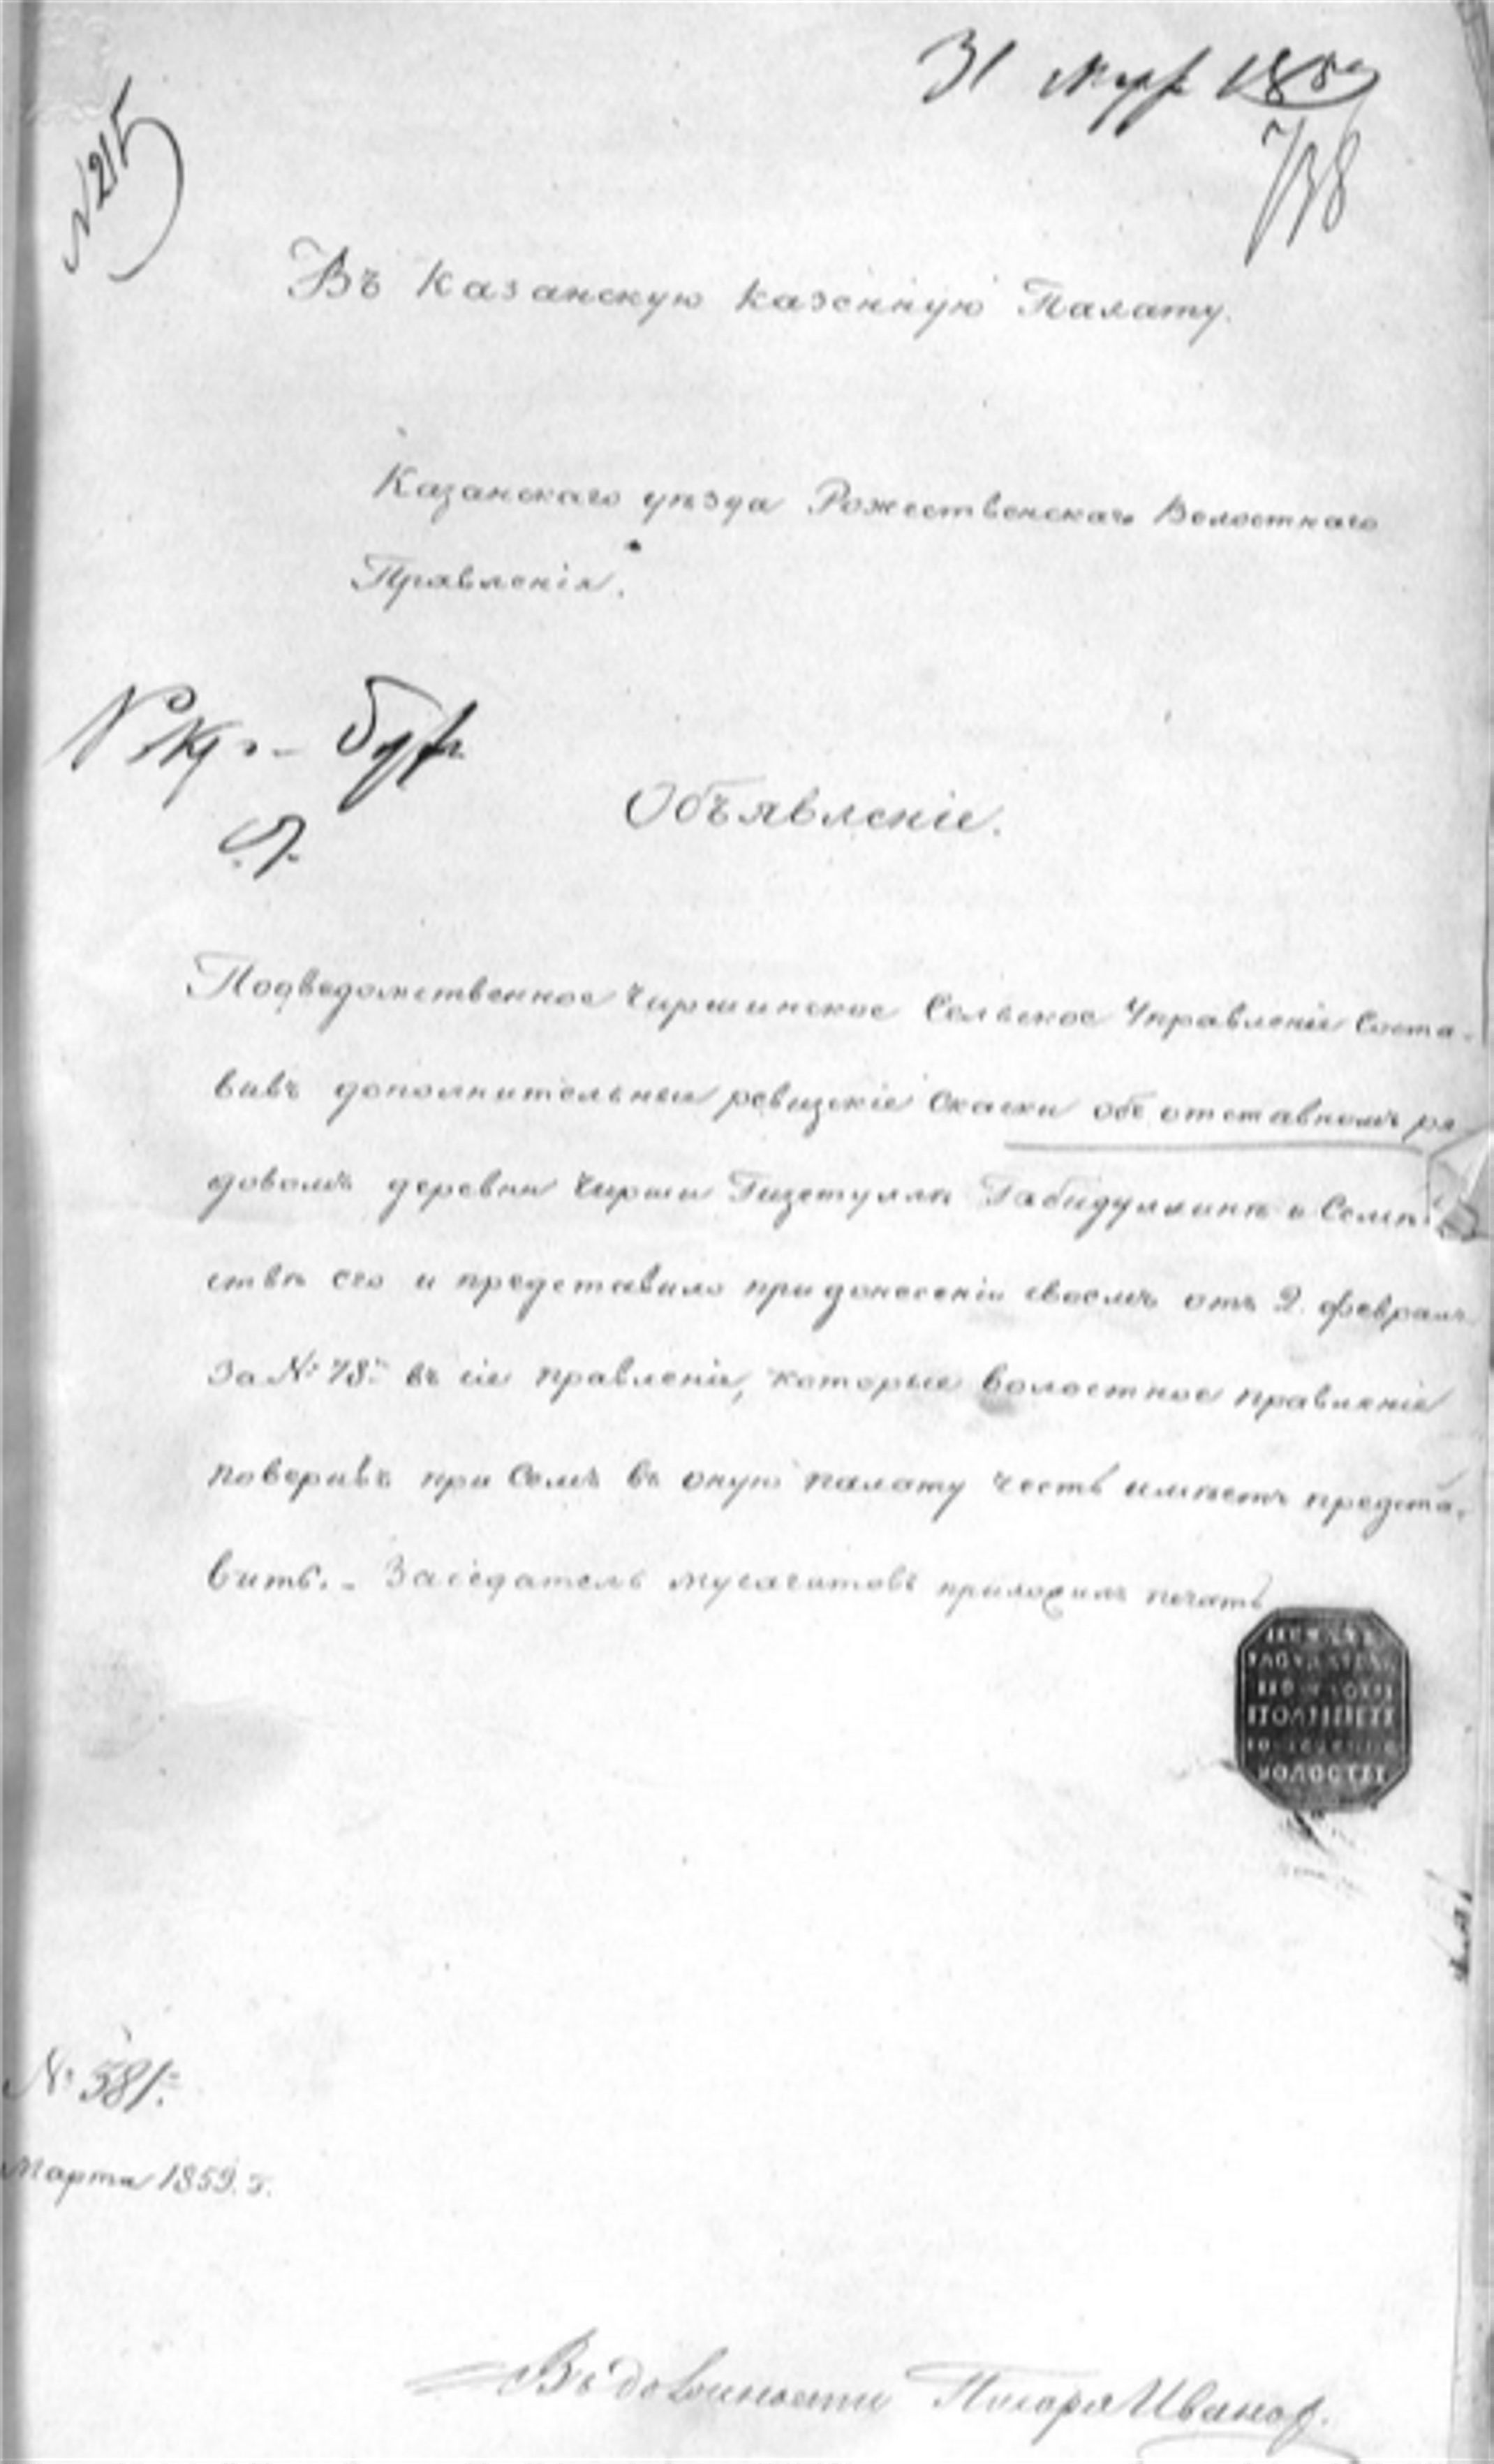 31 Мар 1859
738
№ 215
Въ Казанскую Казенную Палату.
Казанскаго уѣзда Рожественскаго Волостнаго
Правленія.
Объявленіе.
Подведомственное Чиршинское Сельское Управленіе Соста-
вивъ дополнительные ревизскіе Скаски объ отставномъ ря
довомъ деревни Чирши Гизетуллѣ Габидуллинѣ и Семѣй
ствѣ его и представило при донесеніи своемъ отъ 2. февраля
За № 78м въ сіе правленіе, которые волостное правленіе
поверивъ при Семъ въ оную палату честь имѣетъ предста-
вить. - Заседатель Мусагитовъ приложилъ печать
ВОЛОСТІ
№ 581.
Марта 1859. г.
Въ должности Писаря Иванов.